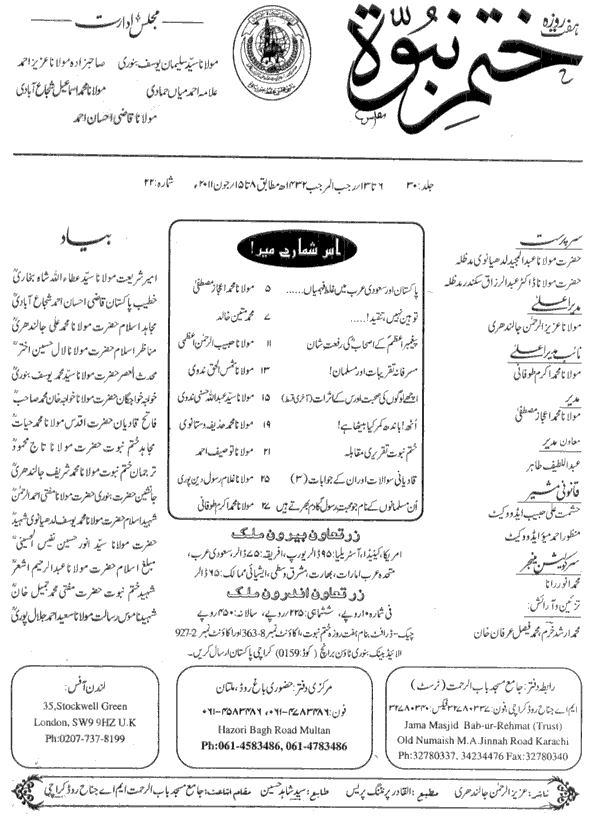 ہفت روزہ
ختم نبوّة
مجلس ادارت
مولانا سیّد سلیمان یوسف بنوری صاحبزادہ مولانا عزیز احمد
علامہ احمد میاں حمادی مولانا محمد اسماعیل شجاع آبادی
مولانا قاضی احسان احمد
جلد: ۳۰ ۶ تا ۱۳/رجب المرجب ۱۴۳۲ھ مطابق ۸ تا ۱۵/جون ۲۰۱۱ء شمارہ: ۲۲
بیاد
امیر شریعت مولانا سیّد عطاء اللہ شاہ بخاریؒ
خطیب پاکستان قاضی احسان احمد شجاع آبادیؒ
مجاہد اسلام حضرت مولانا محمد علی جالندھریؒ
مناظر اسلام حضرت مولانا لال حسین اخترؒ
محدث العصر حضرت مولانا سیّد محمد یوسف بنوریؒ
خواجہ خواجگان حضرت مولانا خواجہ خان محمد صاحبؒ
فاتح قادیان حضرت اقدس مولانا محمد حیاتؒ
مجاہد ختم نبوت حضرت مولانا تاج محمودؒ
ترجمان ختم نبوت حضرت مولانا محمد شریف جالندھریؒ
جانشین حضرت بنوری حضرت مولانا مفتی احمد الرحمٰنؒ
شہید اسلام حضرت مولانا محمد یوسف لدھیانوی شہیدؒ
حضرت مولانا سیّد انور حسین نفیس الحسینیؒ
مبلغ اسلام حضرت مولانا عبدالرحیم اشعرؒ
شہید ختم نبوت حضرت مفتی محمد جمیل خانؒ
شہید ناموس رسالت مولانا سعید احمد جلال پوریؒ
اس شمارے میں!
پاکستان اور سعودی عرب میں غلط فہمیاں...... ۵ مولانا محمد اعجاز مصطفیٰ
توہین نہیں، تنقید! ۷ محمد متین خالد
پیغمبر اعظمؐ کے اصحابؓ کی رفعتِ شان ۱۱ مولانا حبیب الرحمٰن اعظمی
مسرفانہ تقریبات اور مسلمان! ۱۳ مولانا شمس الحق ندوی
اچھے لوگوں کی صحبت اور اس کے اثرات (آخری قسط) ۱۵ مولانا سیّد عبداللہ حسنی ندوی
اُٹھ! باندھ کمر کیا بیٹھا ہے! ۱۹ مولانا محمد حذیفہ وستانوی
ختم نبوت تقریری مقابلہ ۲۱ مولانا توصیف احمد
قادیانی سوالات اور ان کے جوابات (۳) ۲۵ مولانا غلام رسول دین پوری
اُن مسلمانوں کے نام جو محبت رسول کا دم بھرتے ہیں ۲۷ مولانا محمد اکرم طوفانی
سرپرست
حضرت مولانا عبدالمجید لدھیانوی مدظلہ
حضرت مولانا ڈاکٹر عبدالرزاق سکندر مدظلہ
مدیر اعلیٰ
مولانا عزیز الرحمٰن جالندھری
نائب مدیر اعلیٰ
مولانا محمد اکرم طوفانی
مدیر
مولانا محمد اعجاز مصطفیٰ
معاون مدیر
عبداللطیف طاہر
قانونی مشیر
حشمت علی حبیب ایڈووکیٹ
منظور احمد میؤ ایڈووکیٹ
سرکولیشن منیجر
محمد انور رانا
تزئین و آرائش:
محمد ارشد خرم، محمد فیصل عرفان خان
زر تعاون بیرون ملک
امریکا، کینیڈا، آسٹریلیا: ۹۵ ڈالر یورپ، افریقہ: ۷۵ ڈالر، سعودی عرب،
متحدہ عرب امارات، بھارت، مشرق وسطیٰ، ایشیائی ممالک: ۶۵ ڈالر
زر تعاون اندرون ملک
فی شمارہ ۱۰ روپے، ششماہی: ۲۲۵ روپے، سالانہ: ۴۵۰ روپے
چیک-ڈرافٹ بنام ہفت روزہ ختم نبوت، اکاؤنٹ نمبر 8-363 اور اکاؤنٹ نمبر 2-927
الائیڈ بینک بنوری ٹاؤن برانچ (کوڈ: 0159) کراچی پاکستان ارسال کریں۔
لندن آفس:
35,Stockwell Green
London, SW9 9HZ U.K
Ph:0207-737-8199
مرکزی دفتر: حضوری باغ روڈ، ملتان
فون: ۰۶۱-۴۵۸۳۴۸۶، ۰۶۱-۴۷۸۳۴۸۶
Hazori Bagh Road Multan
Ph:061-4583486, 061-4783486
رابطہ دفتر: جامع مسجد باب الرحمت (ٹرسٹ)
ایم اے جناح روڈ کراچی، فون: ۳۲۷۸۰۳۳۷ فیکس: ۳۲۷۸۰۳۴۰
Jama Masjid Bab-ur-Rehmat (Trust)
Old Numaish M.A.Jinnah Road Karachi
Ph:32780337, 34234476 Fax:32780340
ناشر: عزیز الرحمٰن جالندھری مطبع: القادر پرنٹنگ پریس طابع: سید شاہد حسین مقام اشاعت: جامع مسجد باب الرحمت ایم اے جناح روڈ کراچی